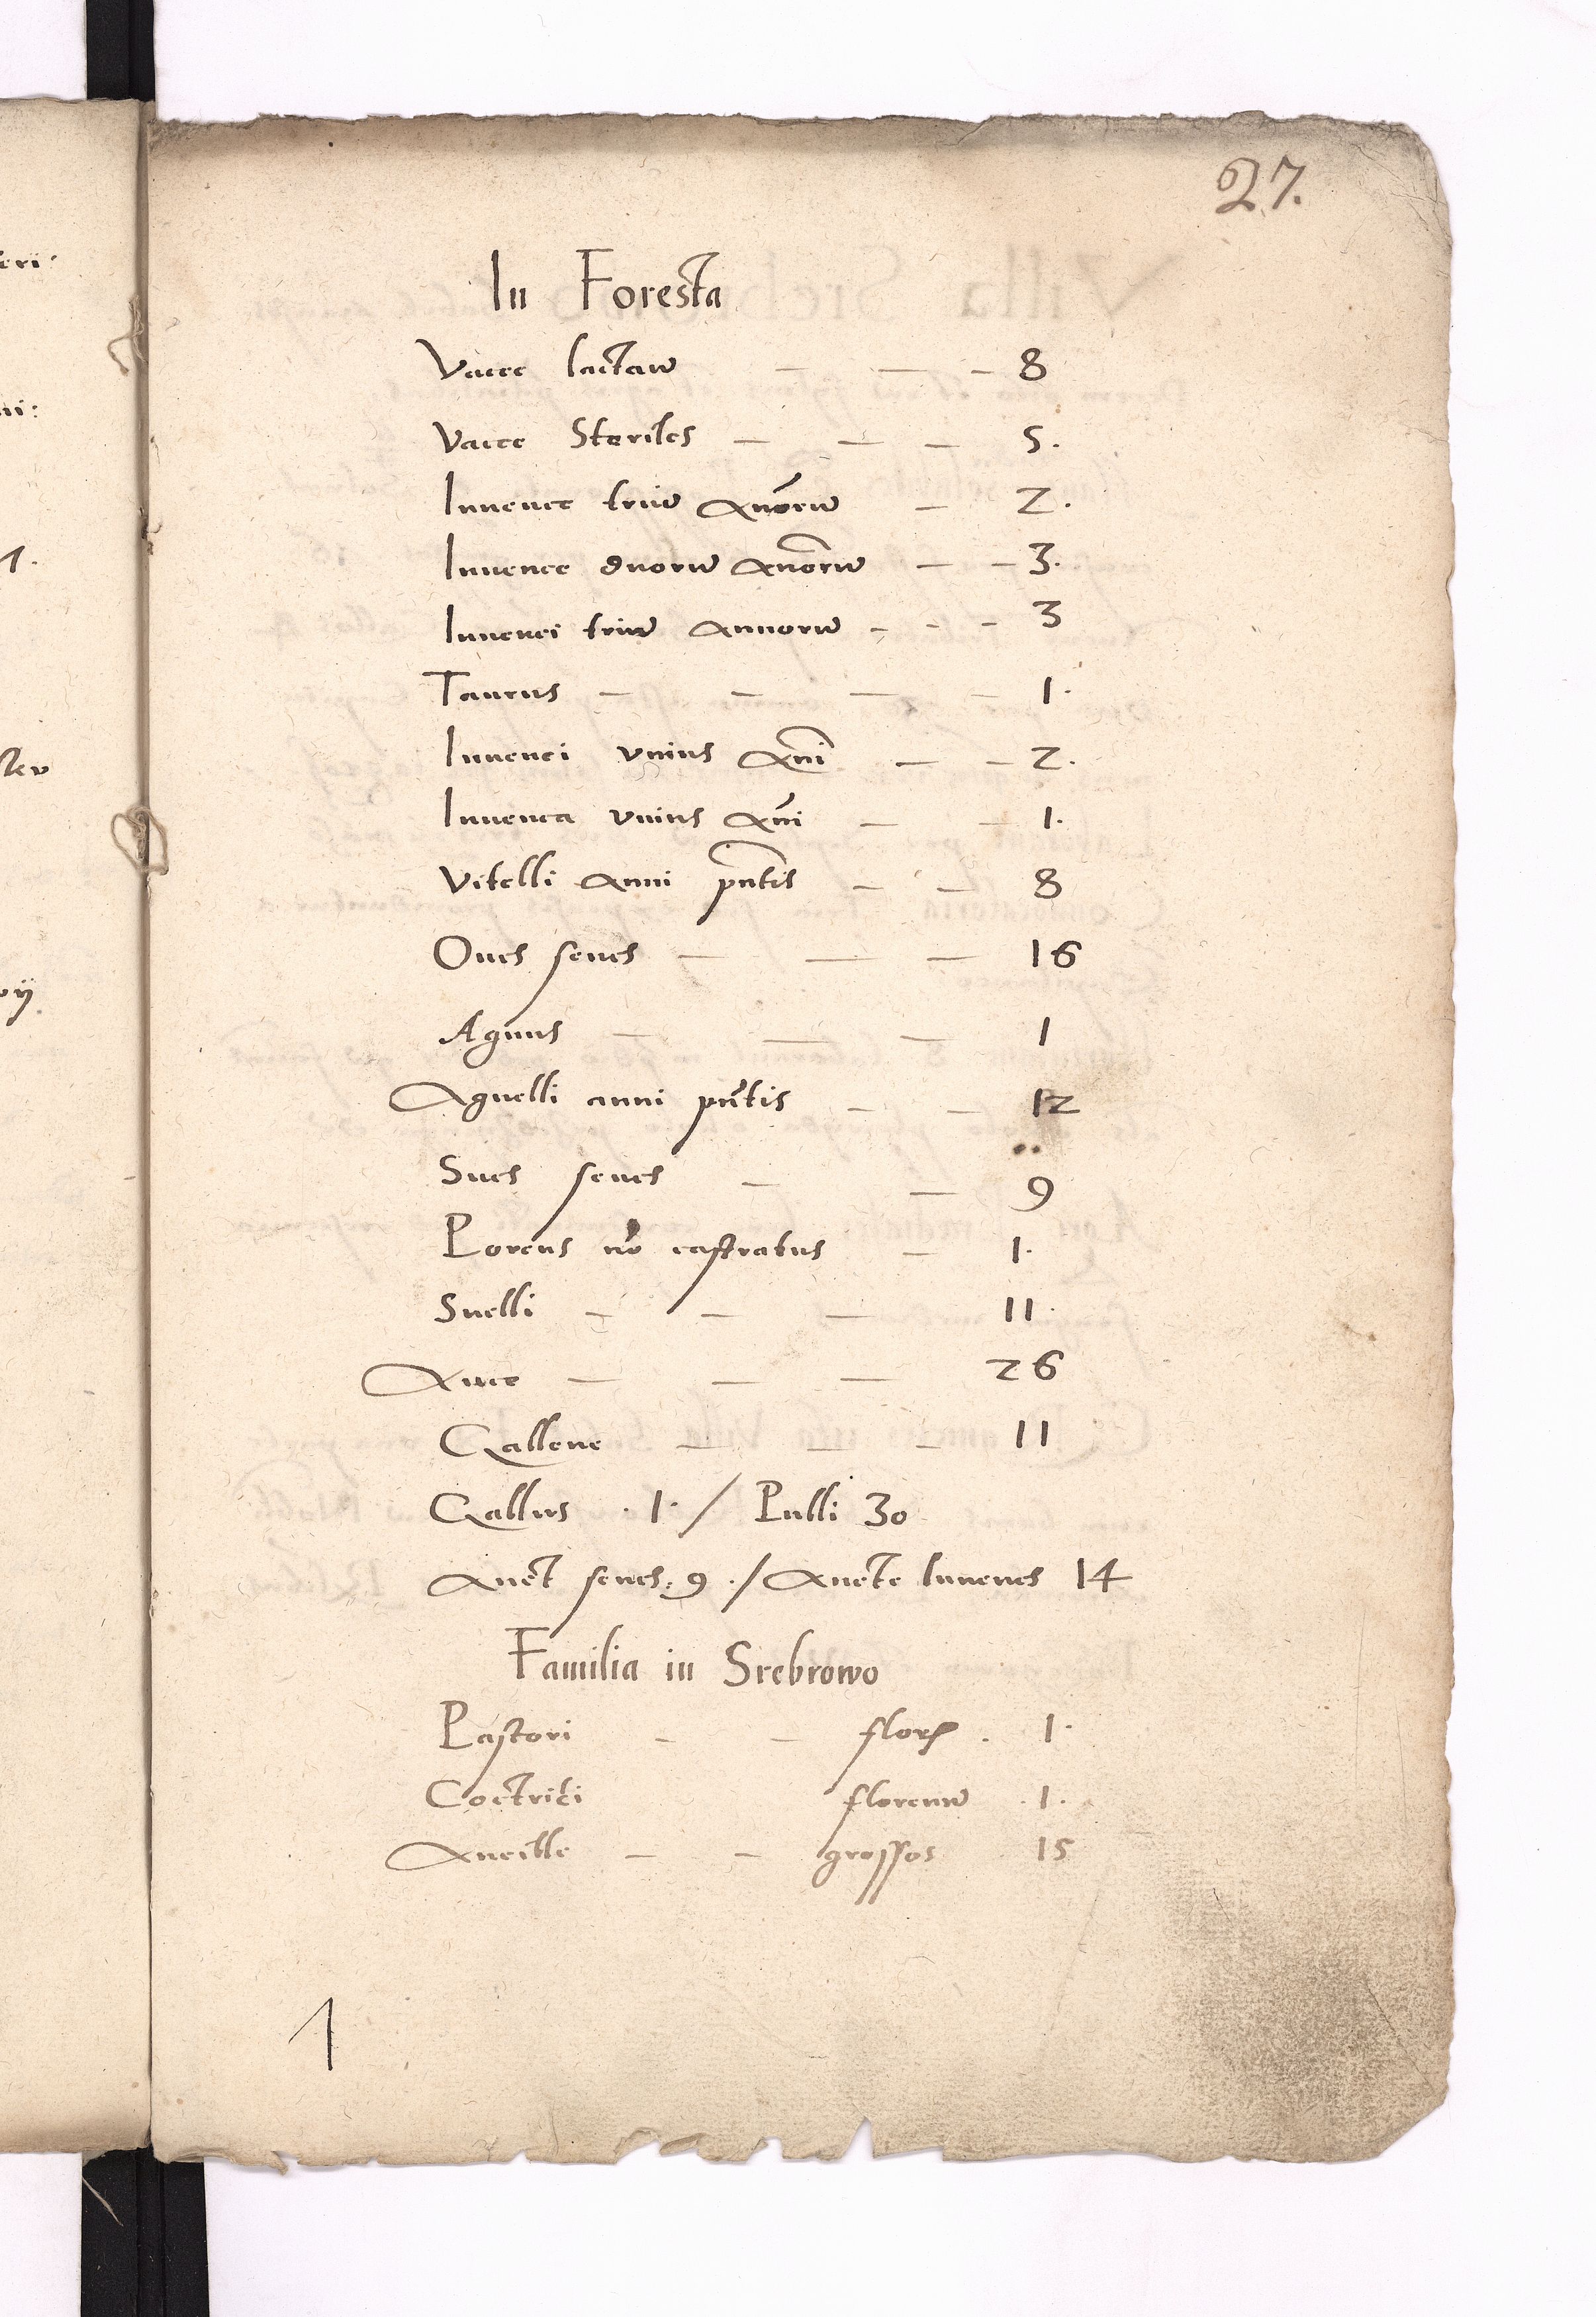 27.
In Foresta
Vacce lactan̄ — — — 8
Vacce Steriles — — — 5.
Iuuence triū An̄orū — 2.
Iuuence duorū An̄orū — — 3.
Iuuenci triū Annorū - - - 3
Taurus — — — — 1.
Iuuenci vnius An̄i — — 2.
Iuuenca vnius An̄i — — 1.
Vitelli Anni pn̄tis — — 8
Oues senes — — — 16
Agnus — — — 1
Agnelli anni pn̄tis — — 12
Sues senes — — 9
Porcus nō castratus — 1.
Suelli — — — 11.
Auce — — — 26
Gallene — — — 11
Gallus .1. / Pulli 30
Anet senes: 9 ./ Anete Iuuenes 14
Familia in Srebrowo
Pastori — — flor. 1.
Coctrici florenū .1.
Ancille — — grossos 15
1
eri:
ni:
1.